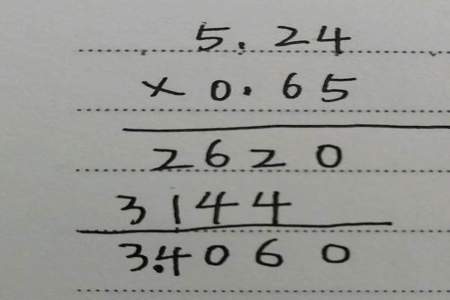 5.24
×0.65
2620
3144
3.4060